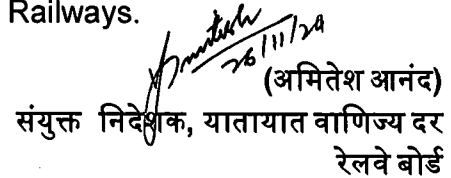 Railways.
Amitesh
26/11/24
(अमितेश आनंद)
संयुक्त निदेशक, यातायात वाणिज्य दर
रेलवे बोर्ड